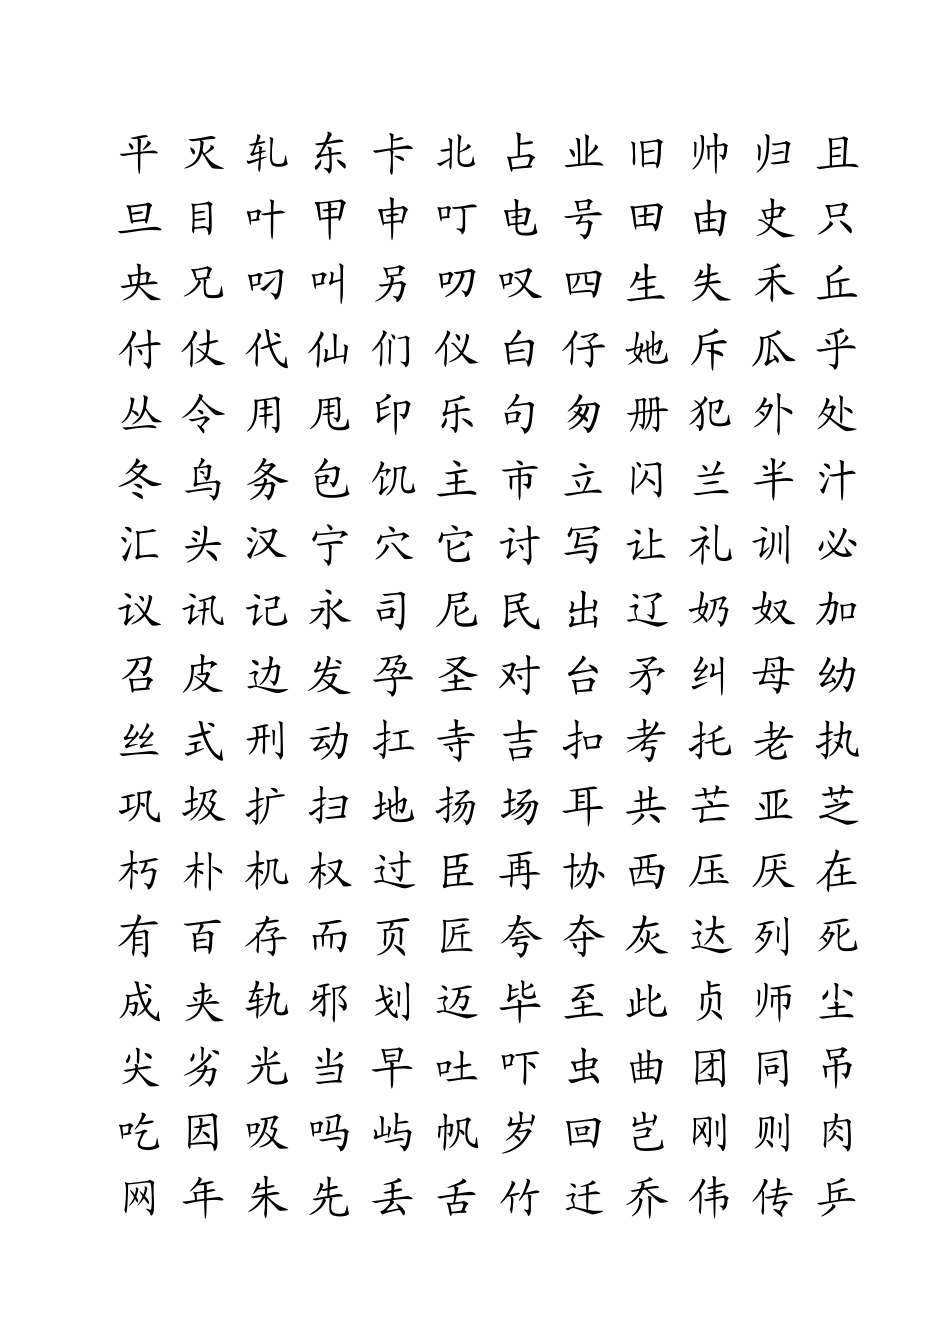 平 灭 轧 东 卡 北 占 业 旧 帅 归 且
旦 目 叶 甲 申 叮 电 号 田 由 史 只
央 兄 叼 叫 另 叨 叹 四 生 失 禾 丘
付 仗 代 仙 们 仪 白 仔 她 斥 瓜 乎
丛 令 用 甩 印 乐 句 匆 册 犯 外 处
冬 鸟 务 包 饥 主 市 立 闪 兰 半 汁
汇 头 汉 宁 穴 它 讨 写 让 礼 训 必
议 讯 记 永 司 尼 民 出 辽 奶 奴 加
召 皮 边 发 孕 圣 对 台 矛 纠 母 幼
丝 式 刑 动 扛 寺 吉 扣 考 托 老 执
巩 圾 扩 扫 地 扬 场 耳 共 芒 亚 芝
朽 朴 机 权 过 臣 再 协 西 压 厌 在
有 百 存 而 页 匠 夸 夺 灰 达 列 死
成 夹 轨 邪 划 迈 毕 至 此 贞 师 尘
尖 劣 光 当 早 吐 吓 虫 曲 团 同 吊
吃 因 吸 吗 屿 帆 岁 回 岂 刚 则 肉
网 年 朱 先 丢 舌 竹 迁 乔 伟 传 乒